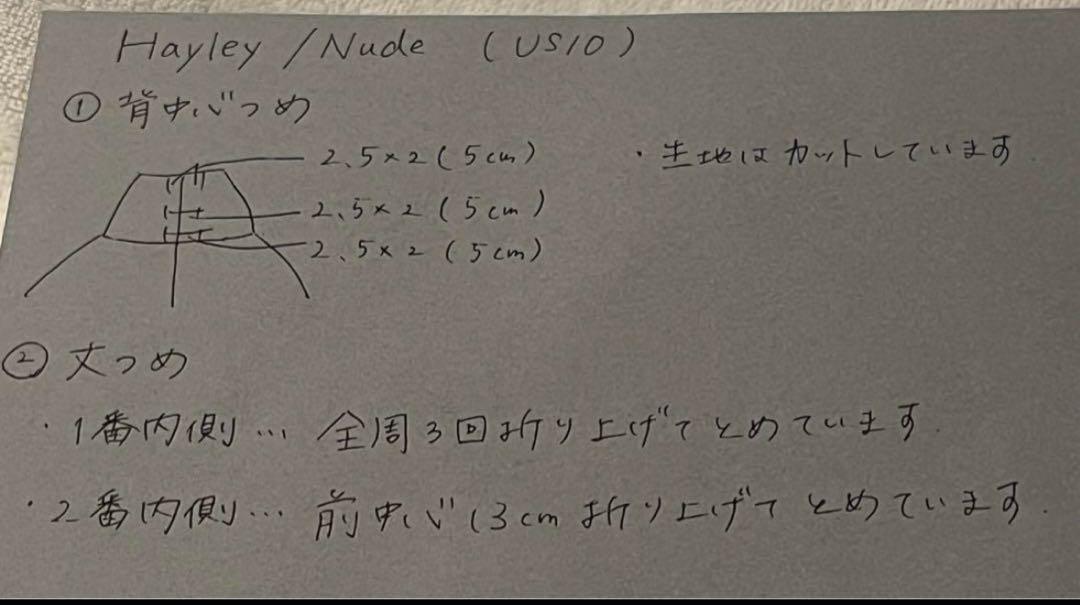 Hayley /Nude (US10)
① 背中心つめ
2.5×2 (5cm)
・生地はカットしています.
2.5×2 (5cm)
2.5×2 (5cm)
② 丈つめ
・1番内側… 全周3回折り上げてとめています.
・2番内側… 前中心13cm折り上げてとめています.